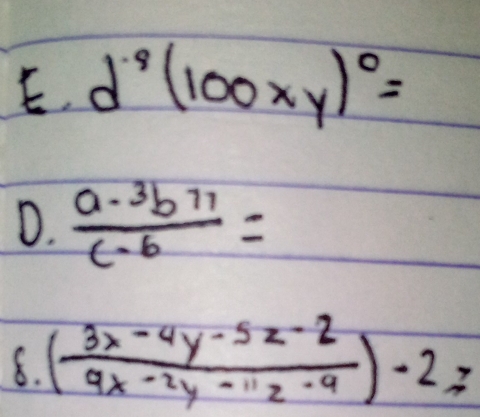 E. d⁻⁹(100xy)⁰=
D. a-³b⁷⁷
c-6 =
8. (3x-4y-5z-2
9x-2y-11z-9) -2=